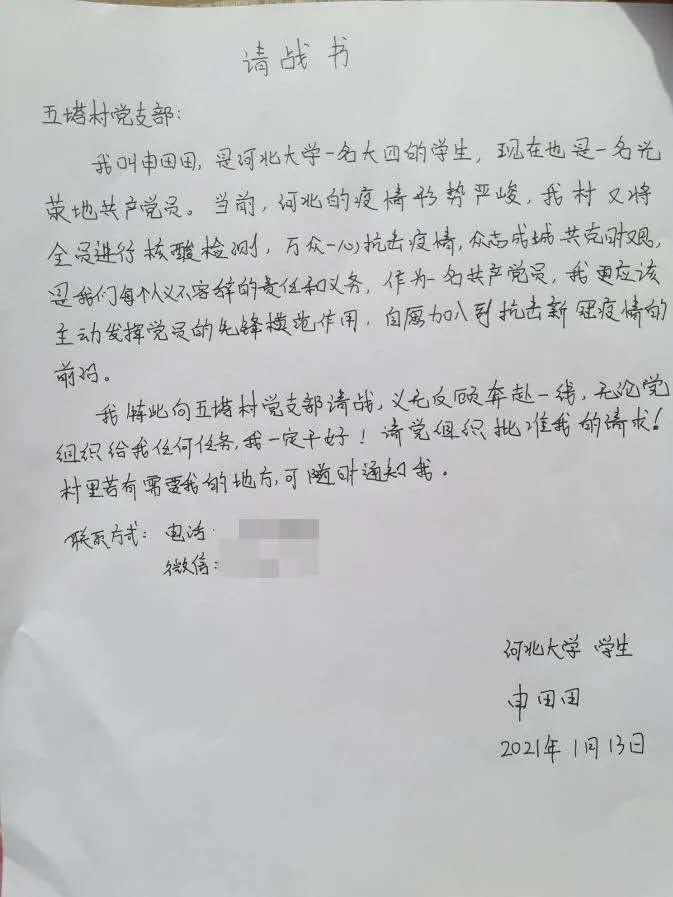 请战书
五塔村党支部：
我叫申田田，是河北大学一名大四的学生，现在也是一名光
荣地共产党员。当前，河北的疫情形势严峻，我村又将
全员进行核酸检测，万众一心抗击疫情，众志成城共克时艰，
是我们每个人义不容辞的责任和义务，作为一名共产党员，我更应该
主动发挥党员的先锋模范作用，自愿加入到抗击新冠疫情的
前沿。
我特此向五塔村党支部请战，义无反顾奔赴一线，无论党
组织给我任何任务，我一定干好！请党组织批准我的请求！
村里若有需要我的地方，可随时通知我。
联系方式：电话：
微信：
河北大学 学生
申田田
2021年1月13日